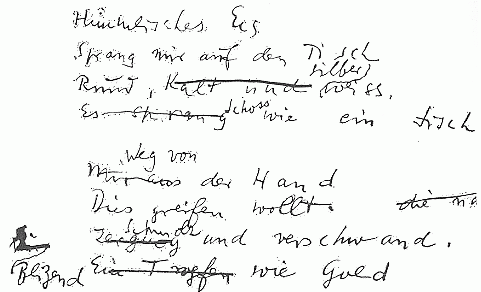 Himmlisches Eis
Sprang mir auf den Tisch
silber
Rund, Kalt und weiss.
Es sprang schoss wie ein Fisch
Weg von
Mir aus der Hand
Die's greifen wollt. die
schmolz und verschwand.
Blizend Ein Tropfen wie Gold